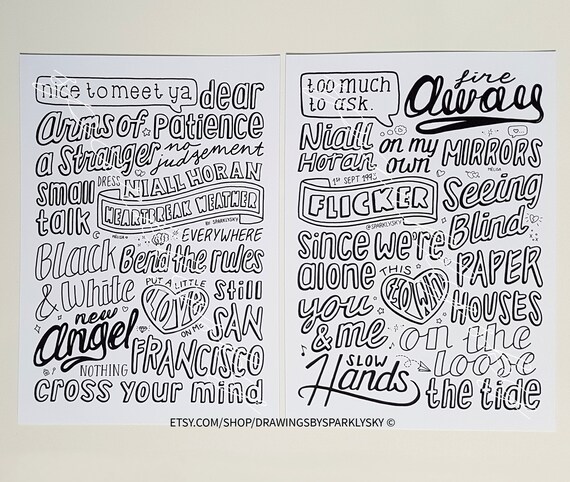 nice to meet ya
dear
Arms of Patience
a Stranger
no judgement
small talk
DRESS
NIALL HORAN
HEARTBREAK WEATHER
MÉLISA ©
@SPARKLYSKY
EVERYWHERE
Black & White
Bend the rules
PUT A LITTLE LOVE ON ME
Still
new Angel
SAN FRANCISCO
NOTHING
cross your mind
too much to ask.
fire away
Niall Horan
on my own
MIRRORS
MÉLISA
1ST SEPT 1993
FLICKER
@SPARKLYSKY
Seeing Blind
since we're alone
THIS TOWN
PAPER HOUSES
you & me
on the loose
SLOW Hands
the tide
ETSY.COM/SHOP/DRAWINGSBYSPARKLYSKY ©